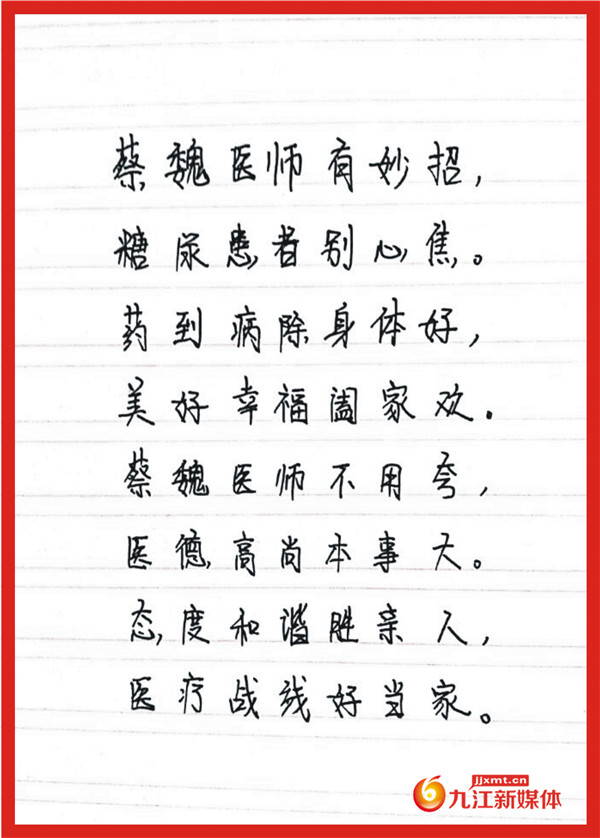 蔡魏医师有妙招，
糖尿患者别心焦。
药到病除身体好，
美好幸福阖家欢.
蔡魏医师不用夸，
医德高尚本事大。
态度和谐胜亲人，
医疗战线好当家。
jjxmt.cn
九江新媒体